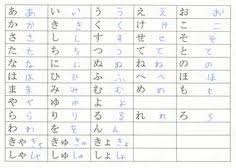 あ あ い い う う え え お お
か か き き く く け け こ こ
さ さ し し す す せ せ そ そ
た た ち ち つ つ て て と と
な な に に ぬ ぬ ね ね の の
は は ひ ひ ふ ふ へ へ ほ ほ
ま ま み み む む め め も も
や や ゆ ゆ よ よ
ら ら り り る る れ れ ろ ろ
わ わ を を ん ん
きゃ きゃ きゅ きゅ きょ きょ
しゃ しゃ しゅ しゅ しょ しょ